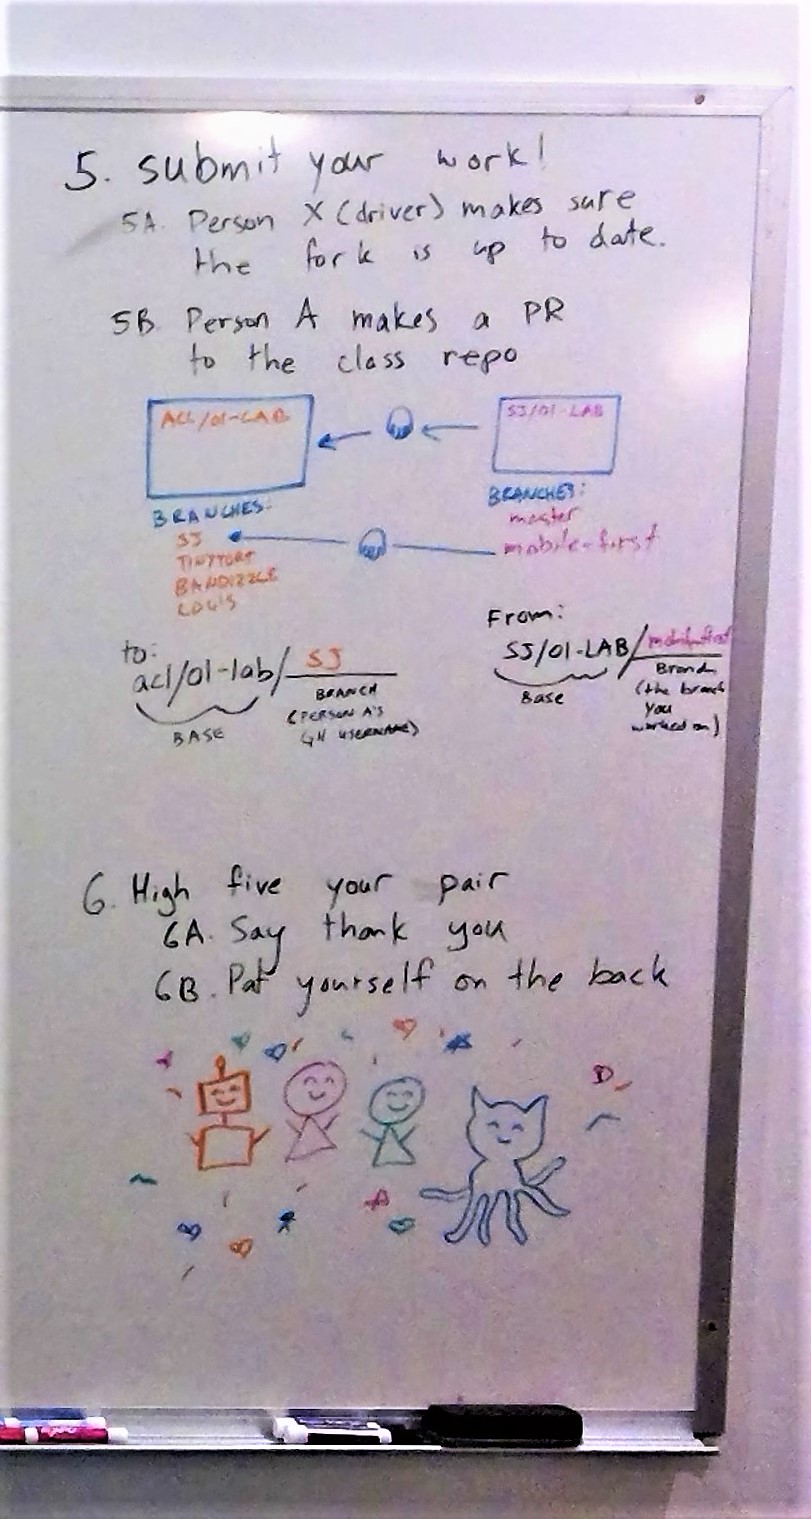 5. Submit your work!
5A. Person X (driver) makes sure
the fork is up to date.
5B Person A makes a PR
to the class repo
ACL/01-LAB
SJ/01-LAB
BRANCHES:
SJ
TINYTORT
BANDIZZLE
LOUIS
BRANCHES:
master
mobile-first
to:
acl/01-lab/SJ
BASE
BRANCH
(PERSON A'S
GH USERNAME)
From:
SJ/01-LAB/mobile-first
Base
Branch
(the branch
you
worked on)
6. High five your pair
6A. Say thank you
6B. Pat yourself on the back